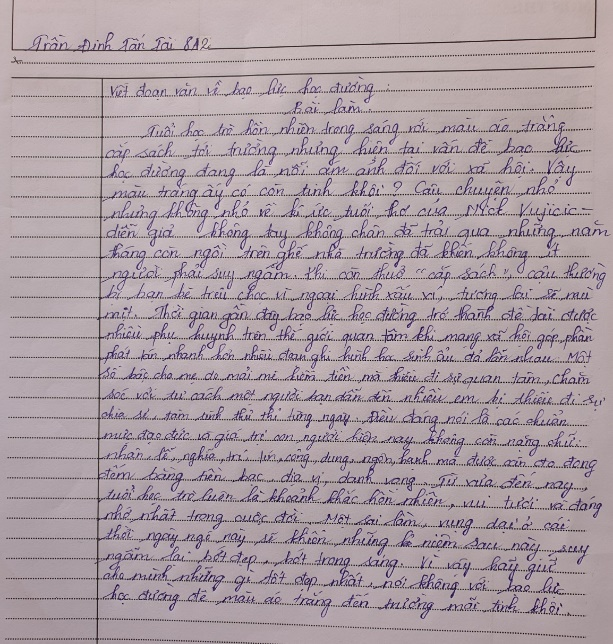 Trần Đình Tấn Tài 8A2
Viết đoạn văn về bạo lực học đường :
Bài làm
Tuổi học trò hồn nhiên trong sáng với màu áo trắng
cắp sách tới trường nhưng hiện tại vấn đề bạo lực
học đường đang là nỗi ám ảnh đối với xã hội. Vậy
màu trắng ấy có còn tinh khôi ? Câu chuyện nhỏ
nhưng không nhỏ về kí ức tuổi thơ của Nick Vujicic -
diễn giả không tay không chân đã trải qua những năm
tháng còn ngồi trên ghế nhà trường đã khiến không ít
người phải suy ngẫm. Khi còn thuở "cắp sách", cậu thường
bị bạn bè trêu chọc vì ngoại hình xấu xí, tương lai sẽ mù
mịt. Thời gian gần đây bạo lực học đường trở thành đề tài được
nhiều phụ huynh trên thế giới quan tâm khi mạng xã hội góp phần
phát tán nhanh hơn nhiều đoạn ghi hình học sinh ẩu đả lẫn nhau. Một
số bậc cha mẹ do mải mê kiếm tiền mà thiếu đi sự quan tâm, chăm
sóc với tư cách một người bạn dẫn đến nhiều em bị thiếu đi sự
chia sẻ, tâm tình thủ thỉ từng ngày. Điều đáng nói là các chuẩn
mực đạo đức và giá trị con người hiện nay không còn nặng chữ:
nhân, lễ, nghĩa, trí, tín, công, dung, ngôn, hạnh mà được cân đo đong
đếm bằng tiền bạc, địa vị, danh vọng. Từ xưa đến nay,
tuổi học trò luôn là khoảnh khắc hồn nhiên, vui tươi và đáng
nhớ nhất trong cuộc đời. Một sai lầm, vụng dại ở cái
thời ngây ngô này sẽ khiến những kỉ niệm sau này suy
ngẫm lại bớt đẹp, bớt trong sáng. Vì vậy hãy giữ
cho mình những gì tốt đẹp nhất, nói không với bạo lực
học đường để màu áo trắng đến trường mãi tinh khôi.